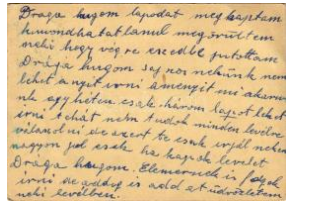 Draga hugom lapodat megkaptam
kimondhatatlanul megörültem
neki hogy végre ezedbe jutottam
Drága hugom saj nos nekünk nem
lehet a nyit irni amenyit mi akarunk
nk egy héten csak három lapot lehet
irni tehát nem tudok minden levélre
válaszolni de azért te csak irjál nekem
nagyon jol esik ha kapok levelet
Drága hugom. Elemernek is fogok
irni de addig is add át üdvözletem
neki levélben.